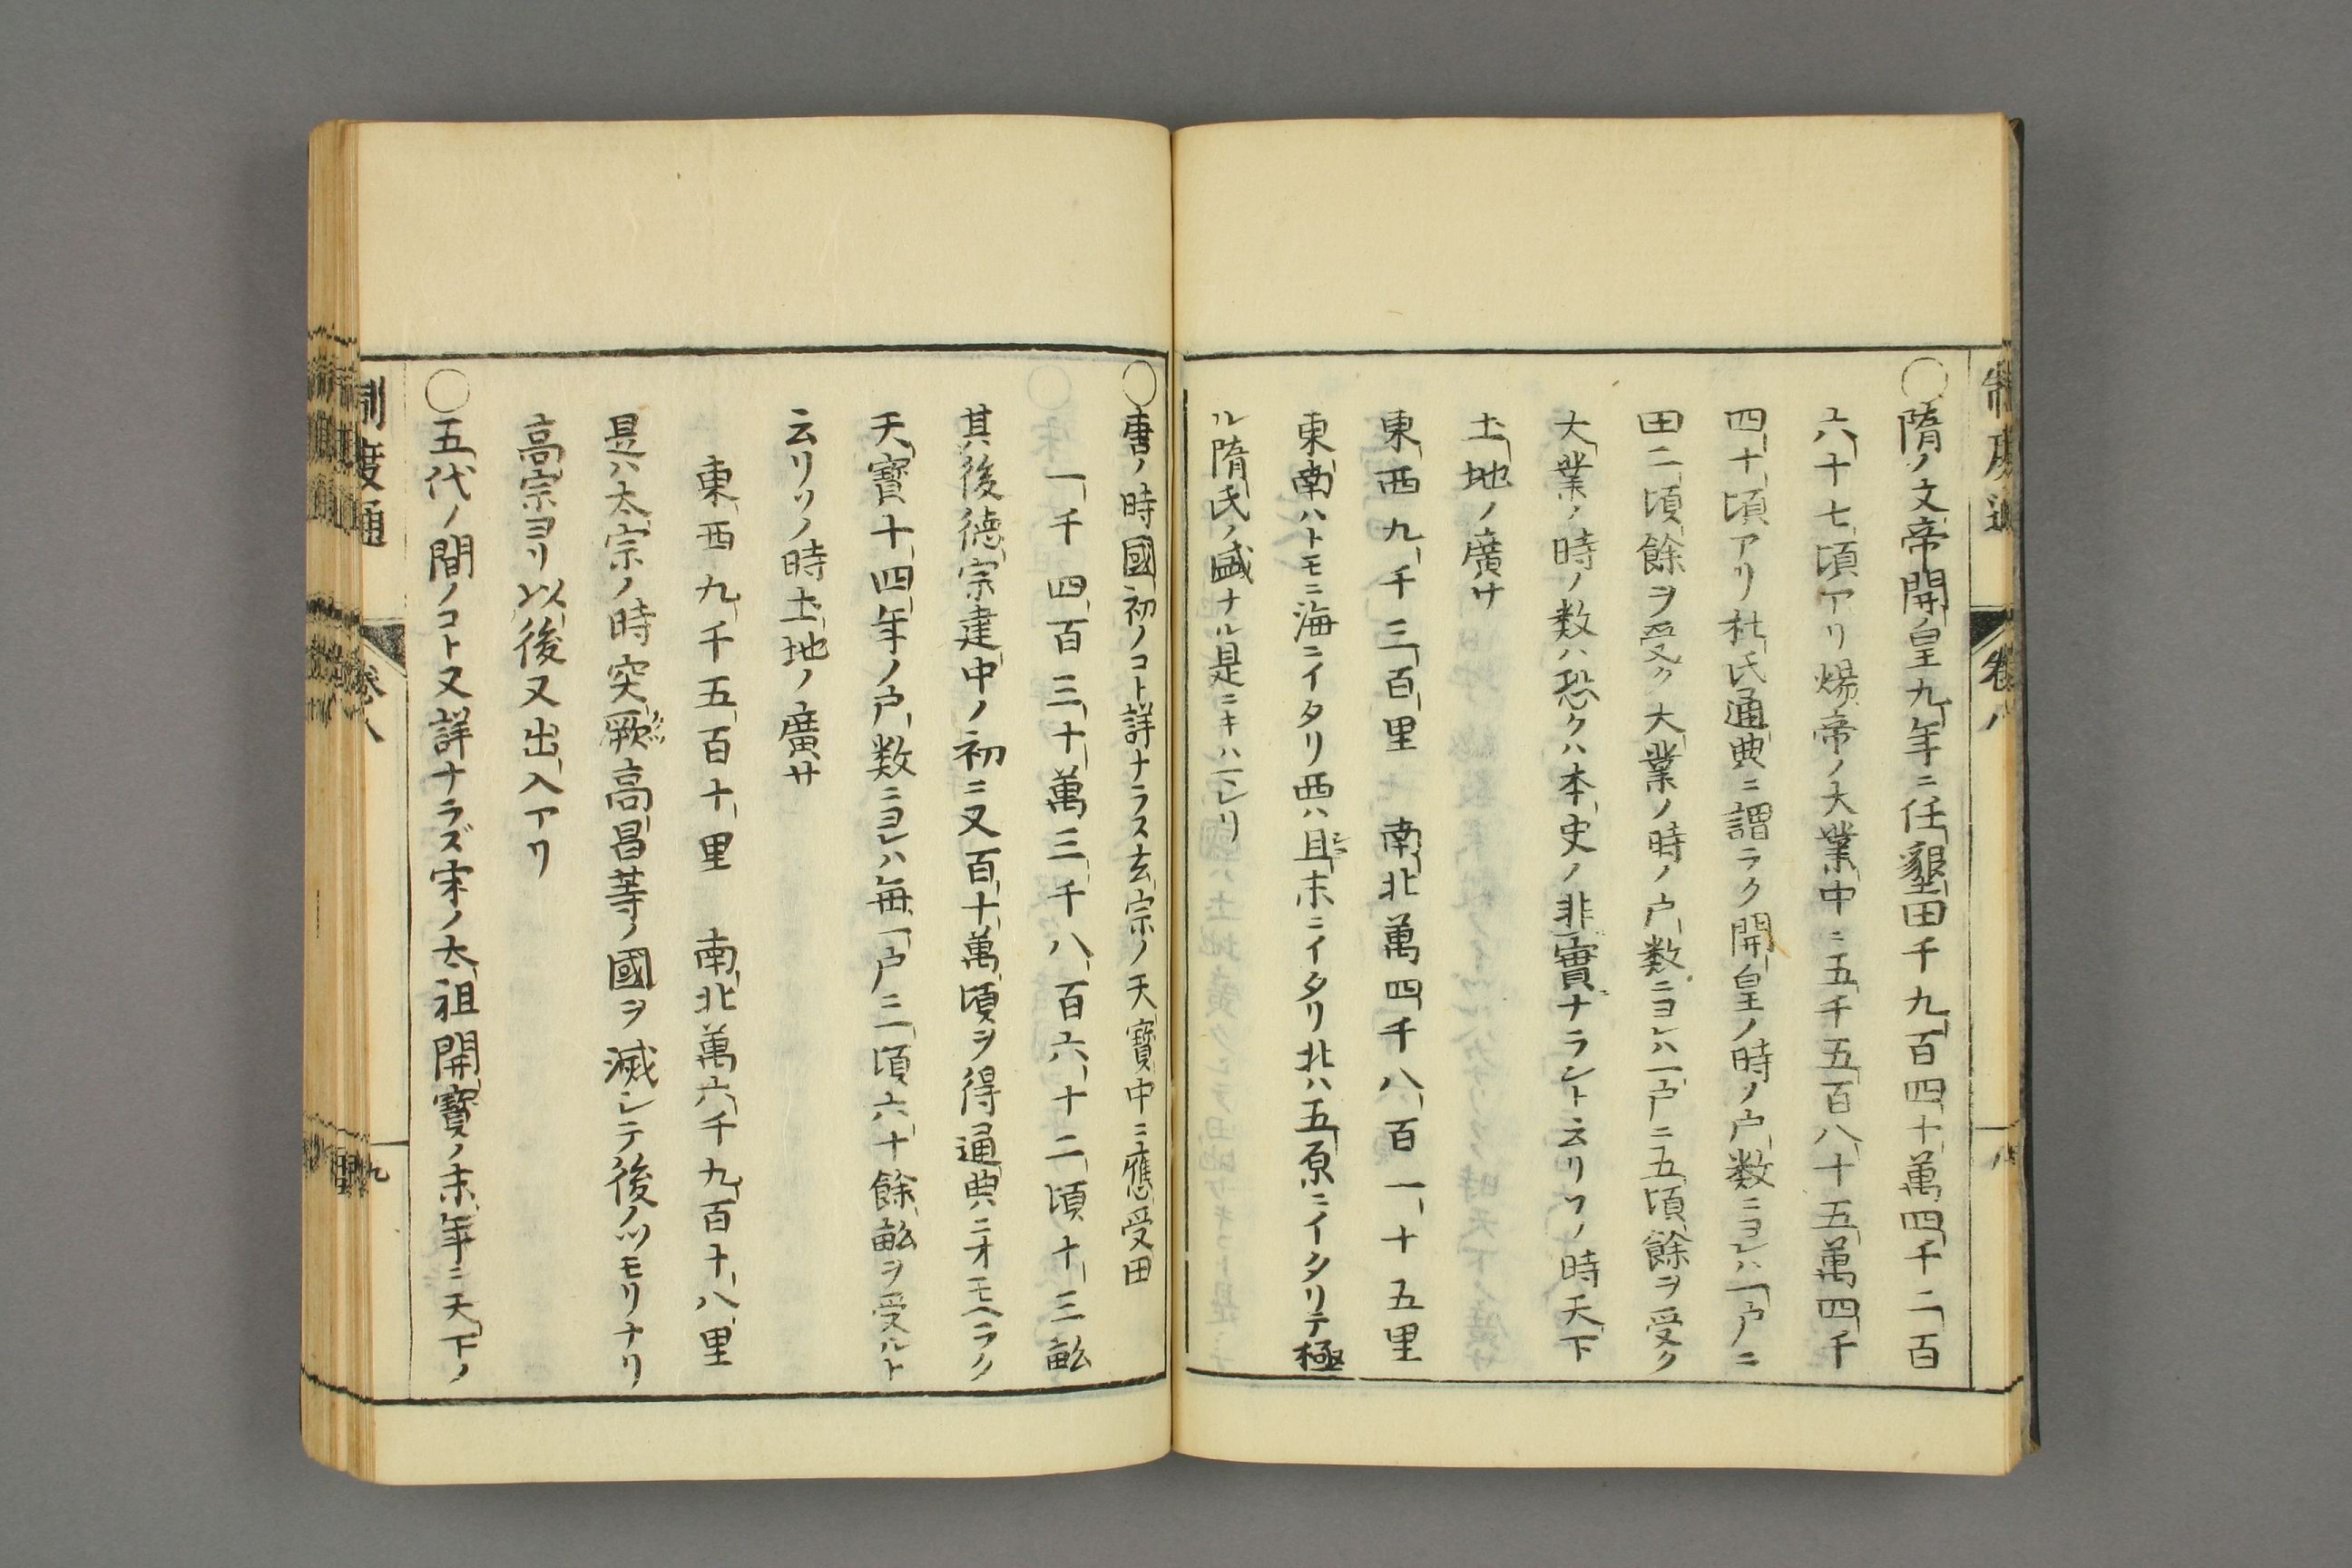 ○隋ノ文帝開皇九年ニ任墾田千九百四十萬四千二百
六十七頃アリ煬帝ノ大業中ニ五千五百八十五萬四千
四十頃アリ杜氏通典ニ謂ラク開皇ノ時ノ戸数ニヨレハ一戸ノニ
田二頃餘ヲ受ク大業ノ時ノ戸数ニヨレハ一戸ニ五頃餘ヲ受ク
大業ノ時ノ数ハ恐クハ本史ノ非實ナラント云リソノ時天下
土地ノ廣サ
東西九千三百里　南北萬四千八百一十五里
東南ハトモニ海ニイタリ西ハ且末ニイタリ北ハ五原ニイタリテ極
ル隋氏ノ盛ナル是ニキハマレリ
○唐ノ時國初ノコト詳ナラス玄宗ノ天寶中ニ應受田
一千四百三十萬三千八百六十二頃十三畝
其後徳宗建中ノ初ニ又百十萬頃ヲ得通典ニオモヘラク
天寶十四年ノ戸数ニヨレハ毎一戸ニ一頃六十餘畝ヲ受ルト
云リソノ時土地ノ廣サ
東西九千五百十里　南北萬六千九百十八里
是ハ太宗ノ時突厥高昌等ノ國ヲ滅シテ後ノツモリナリ
高宗ヨリ以後又出入アリ
○五代ノ間ノコト又詳ナラズ宋ノ太祖開寶ノ末年ニ天下ノ
制度通
卷八
九